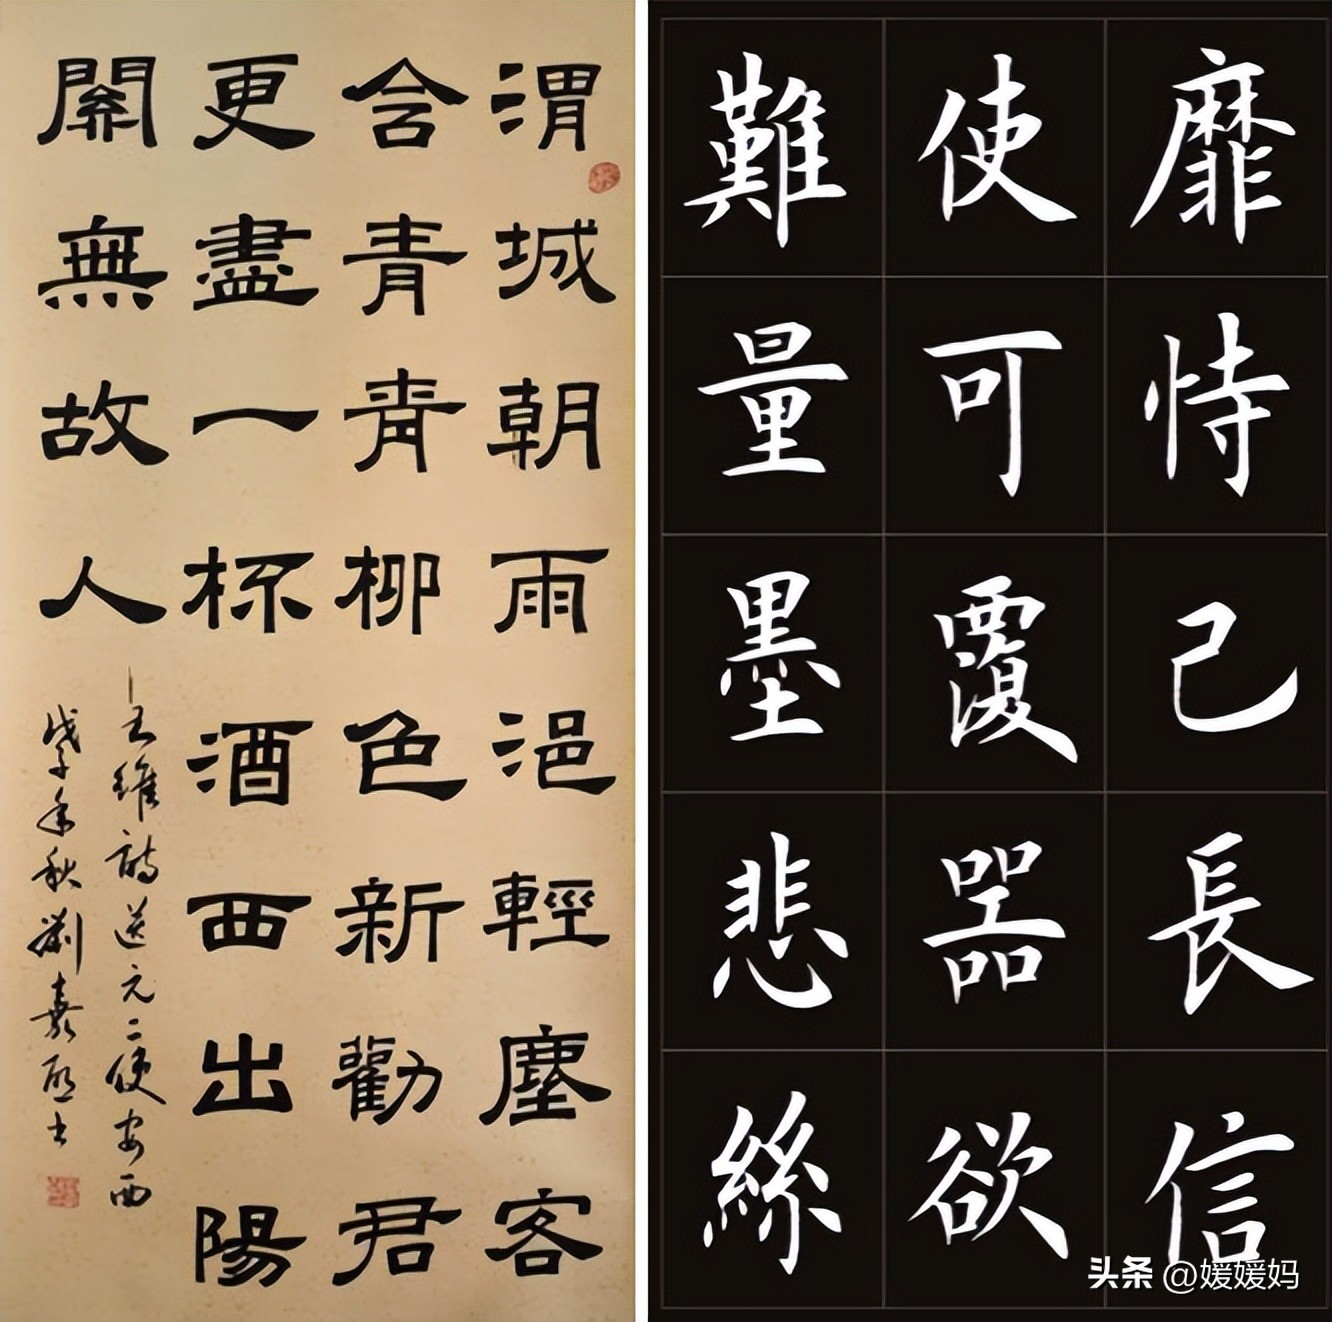 渭城朝雨浥輕塵客
舍青青柳色新勸君
更盡一杯酒西出陽
關無故人
王維詩送元二使安西
戊子年秋劉嘉
靡恃己長信
使可覆器欲
難量墨悲絲
头条 @媛媛妈